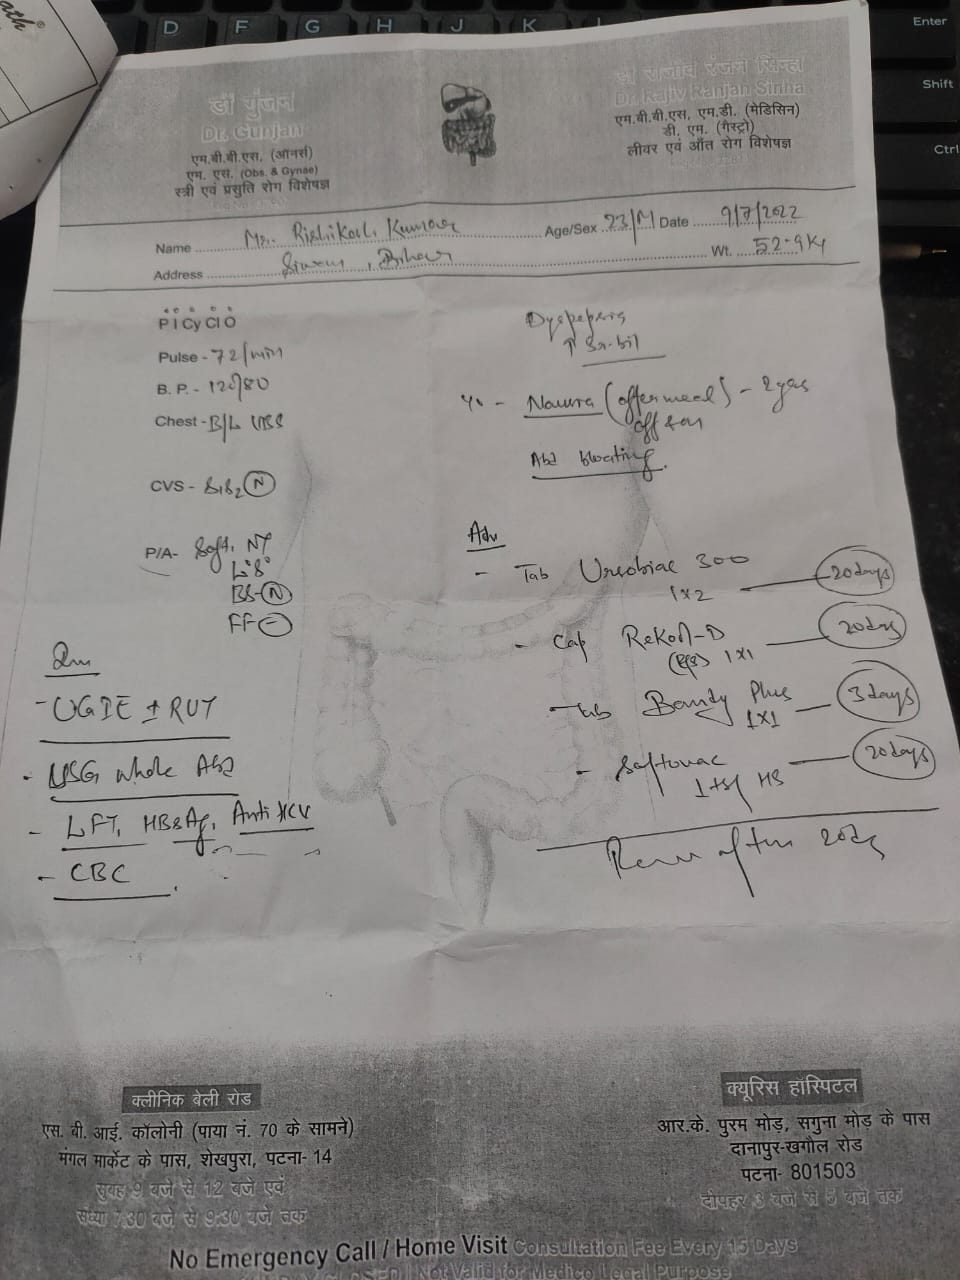 D F G H J K L
Enter
Shift
Ctrl
ath
डॉ गुंजन
Dr. Gunjan
एम.बी.बी.एस. (आनर्स)
एम. एस. (Obs. & Gynae)
स्त्री एवं प्रसुति रोग विशेषज्ञ
डॉ राजीव रंजन सिन्हा
Dr. Rajiv Ranjan Sinha
एम.बी.बी.एस, एम.डी. (मेडिसिन)
डी. एम. (गैस्ट्रो)
लीवर एवं आँत रोग विशेषज्ञ
Name Mr. Kumar Age/Sex 23/M Date 9/7/2022
Address Siwan, Bihar Wt. 52.9 Kg
P I Cy Cl O
Pulse - 72/min
B. P. - 120/80
Chest - B/L VBS
CVS - S1S2 (N)
P/A- Soft, NT
L°S°
BS-(N)
FF(-)
- UGIE ± RUT
- USG Whole Abd
- LFT, HBsAg, Anti HCV
- CBC
Dyspepsia
↑ Sr. bil
- Nausea (after meal) - 2 yrs
Abd bloating.
Adv
- Tab 300
1x2 — 20 days
- Cap D
1x1 — 20 days
- Tab Bandy Plus
1x1 — 3 days
- Softovac
1 tsf HS — 20 days
after 20 days
क्लीनिक बेली रोड
एस. बी. आई. कॉलोनी (पाया नं. 70 के सामने)
मंगल मार्केट के पास, शेखपुरा, पटना- 14
सुबह 9 बजे से 12 बजे एवं
संध्या 7:30 बजे से 9:30 बजे तक
क्यूरिस हॉस्पिटल
आर.के. पुरम मोड़, सगुना मोड़ के पास
दानापुर-खगौल रोड
पटना- 801503
दोपहर 3 बजे से 5 बजे तक
No Emergency Call / Home Visit Consultation Fee Every 15 Days
Not Valid for Medico Legal Purpose